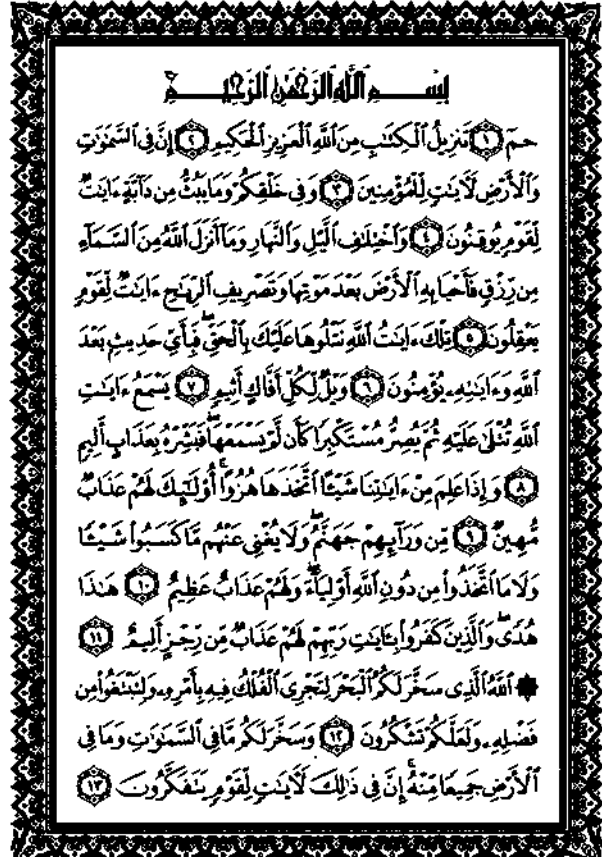 بِسْمِ ٱللَّهِ ٱلرَّحْمَٰنِ ٱلرَّحِيمِ
حمٓ ١ تَنزِيلُ ٱلْكِتَٰبِ مِنَ ٱللَّهِ ٱلْعَزِيزِ ٱلْحَكِيمِ ٢ إِنَّ فِى ٱلسَّمَٰوَٰتِ
وَٱلْأَرْضِ لَءَايَٰتٍ لِّلْمُؤْمِنِينَ ٣ وَفِى خَلْقِكُمْ وَمَا يَبُثُّ مِن دَآبَّةٍ ءَايَٰتٌ
لِّقَوْمٍ يُوقِنُونَ ٤ وَٱخْتِلَٰفِ ٱلَّيْلِ وَٱلنَّهَارِ وَمَآ أَنزَلَ ٱللَّهُ مِنَ ٱلسَّمَآءِ
مِن رِّزْقٍ فَأَحْيَا بِهِ ٱلْأَرْضَ بَعْدَ مَوْتِهَا وَتَصْرِيفِ ٱلرِّيَٰحِ ءَايَٰتٌ لِّقَوْمٍ
يَعْقِلُونَ ٥ تِلْكَ ءَايَٰتُ ٱللَّهِ نَتْلُوهَا عَلَيْكَ بِٱلْحَقِّ ۖ فَبِأَىِّ حَدِيثٍۭ بَعْدَ
ٱللَّهِ وَءَايَٰتِهِۦ يُؤْمِنُونَ ٦ وَيْلٌ لِّكُلِّ أَفَّاكٍ أَثِيمٍ ٧ يَسْمَعُ ءَايَٰتِ
ٱللَّهِ تُتْلَىٰ عَلَيْهِ ثُمَّ يُصِرُّ مُسْتَكْبِرًا كَأَن لَّمْ يَسْمَعْهَا ۖ فَبَشِّرْهُ بِعَذَابٍ أَلِيمٍ
٨ وَإِذَا عَلِمَ مِنْ ءَايَٰتِنَا شَيْـًٔا ٱتَّخَذَهَا هُزُوًا ۚ أُو۟لَٰٓئِكَ لَهُمْ عَذَابٌ
مُّهِينٌ ٩ مِّن وَرَآئِهِمْ جَهَنَّمُ ۖ وَلَا يُغْنِى عَنْهُم مَّا كَسَبُوا۟ شَيْـًٔا
وَلَا مَا ٱتَّخَذُوا۟ مِن دُونِ ٱللَّهِ أَوْلِيَآءَ ۖ وَلَهُمْ عَذَابٌ عَظِيمٌ ١٠ هَٰذَا
هُدًى ۖ وَٱلَّذِينَ كَفَرُوا۟ بِـَٔايَٰتِ رَبِّهِمْ لَهُمْ عَذَابٌ مِّن رِّجْزٍ أَلِيمٌ ١١
۞ ٱللَّهُ ٱلَّذِى سَخَّرَ لَكُمُ ٱلْبَحْرَ لِتَجْرِىَ ٱلْفُلْكُ فِيهِ بِأَمْرِهِۦ وَلِتَبْتَغُوا۟ مِن
فَضْلِهِۦ وَلَعَلَّكُمْ تَشْكُرُونَ ١٢ وَسَخَّرَ لَكُم مَّا فِى ٱلسَّمَٰوَٰتِ وَمَا فِى
ٱلْأَرْضِ جَمِيعًا مِّنْهُ ۚ إِنَّ فِى ذَٰلِكَ لَءَايَٰتٍ لِّقَوْمٍ يَتَفَكَّرُونَ ١٣